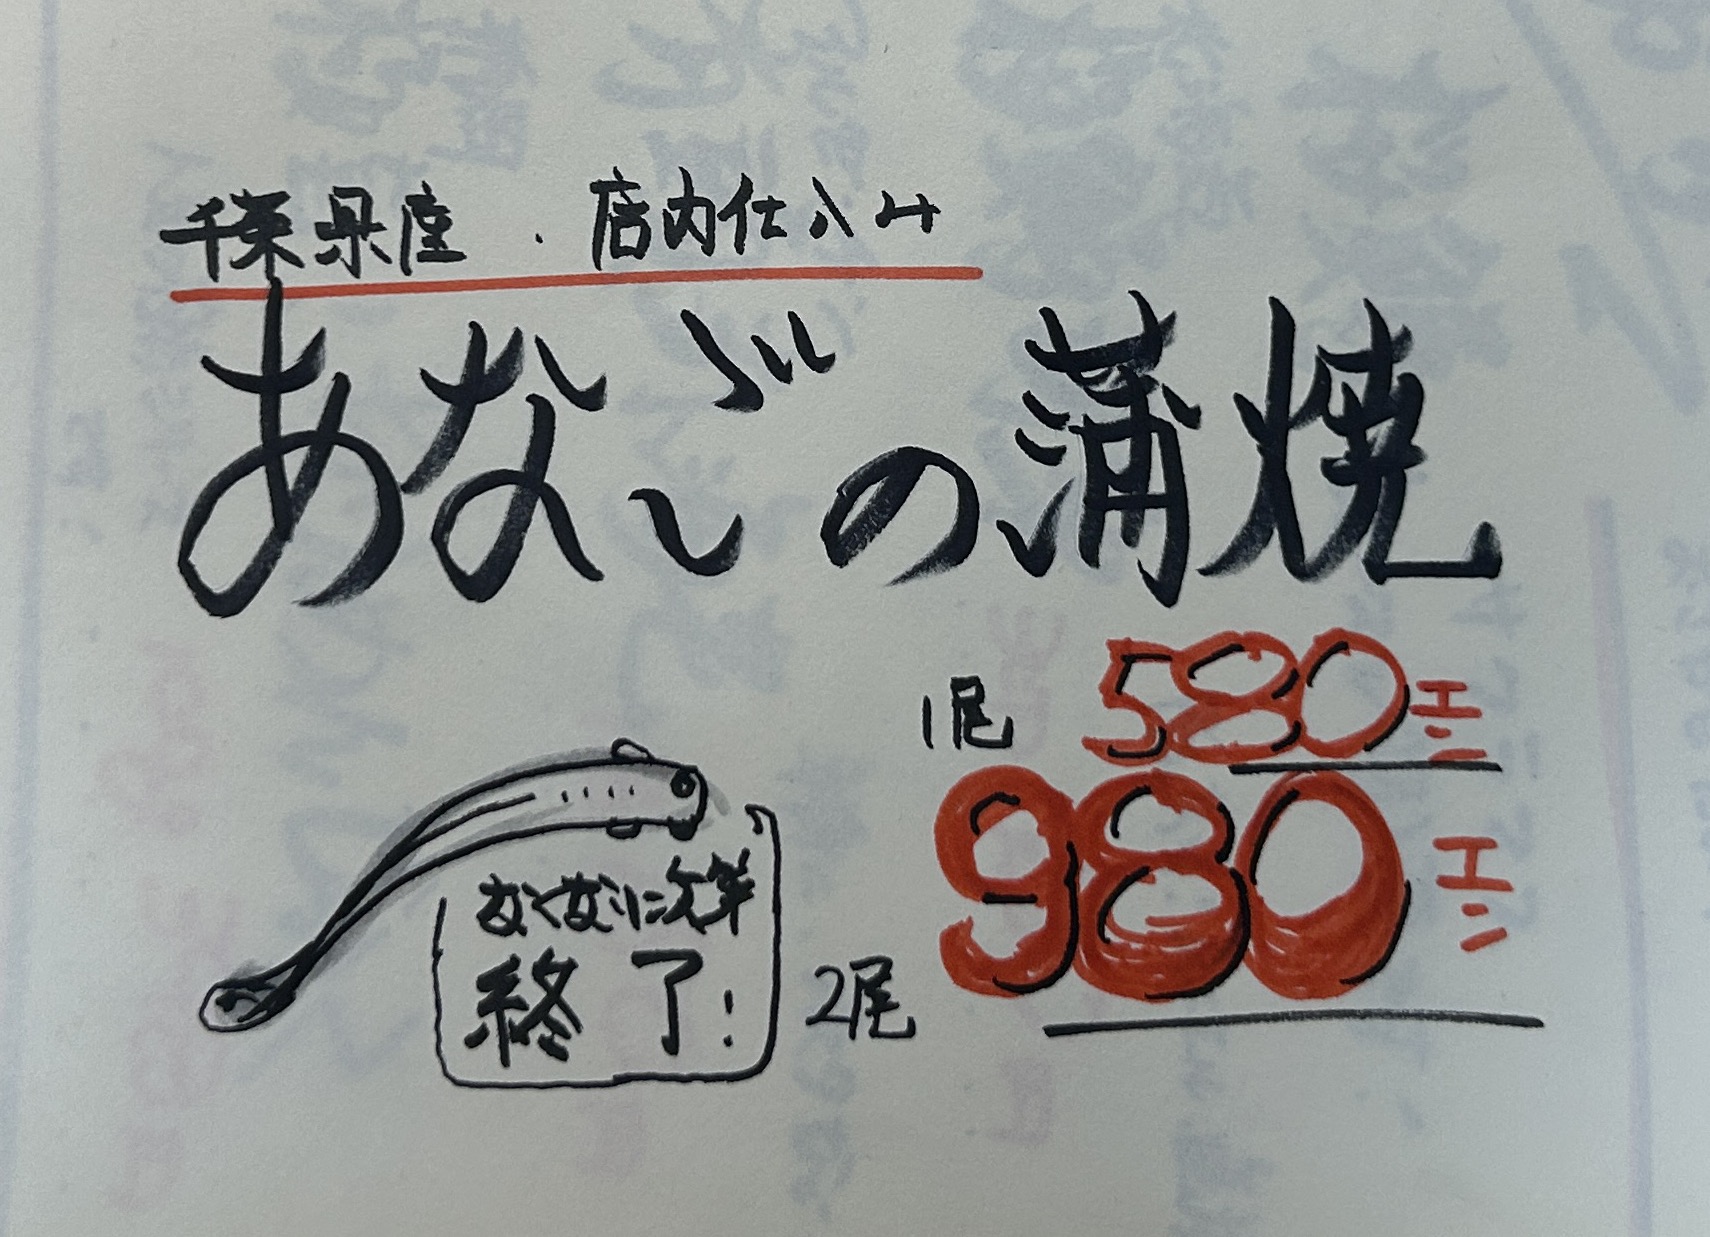 千葉県産・店内仕入み
あなごの蒲焼
1尾 580エン
2尾 980エン
なくなり次第
終了!